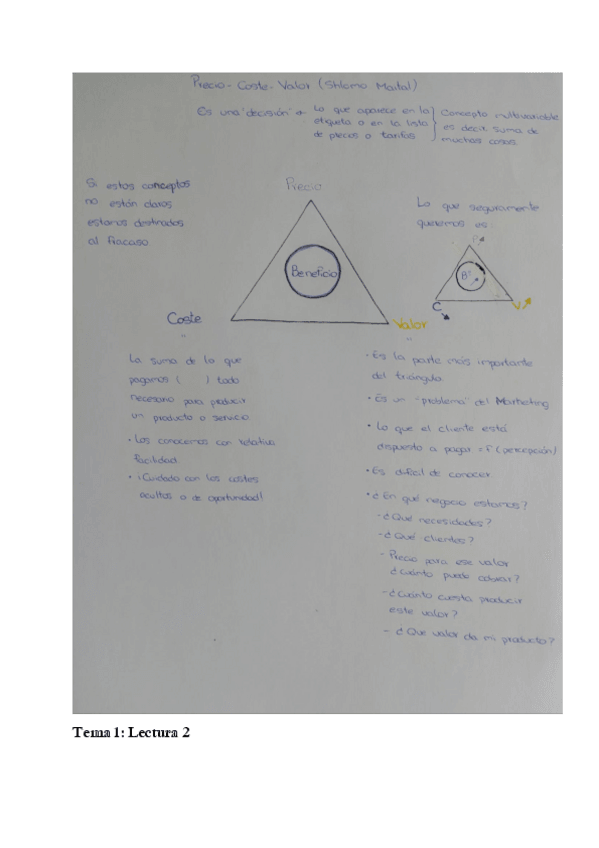 Precio - Coste - Valor (Shlomo Maital)
Es una "decisión" → Lo que aparece en la
etiqueta o en la lista
de precios o tarifas
Concepto multivariable
es decir, suma de
muchas cosas.
Si estos conceptos
no están claros
estamos destinados
al fracaso.
Precio
Beneficio
Coste
Valor
Lo que seguramente
queremos es
Bº
C
V
La suma de lo que
pagamos ( ) todo
necesario para producir
un producto o servicio
· Los conocemos con relativa
facilidad.
· ¡Cuidado con los costes
ocultos o de oportunidad!
· Es la parte más importante
del triángulo.
· Es un "problema" del Marketing
· Lo que el cliente está
dispuesto a pagar = f (percepción)
· Es difícil de conocer.
· ¿En qué negocio estamos?
- ¿Qué necesidades?
- ¿Qué clientes?
- Precio para ese valor
¿cuánto puedo cobrar?
- ¿Cuánto cuesta producir
este valor?
- ¿Que valor da mi producto?
Tema 1: Lectura 2